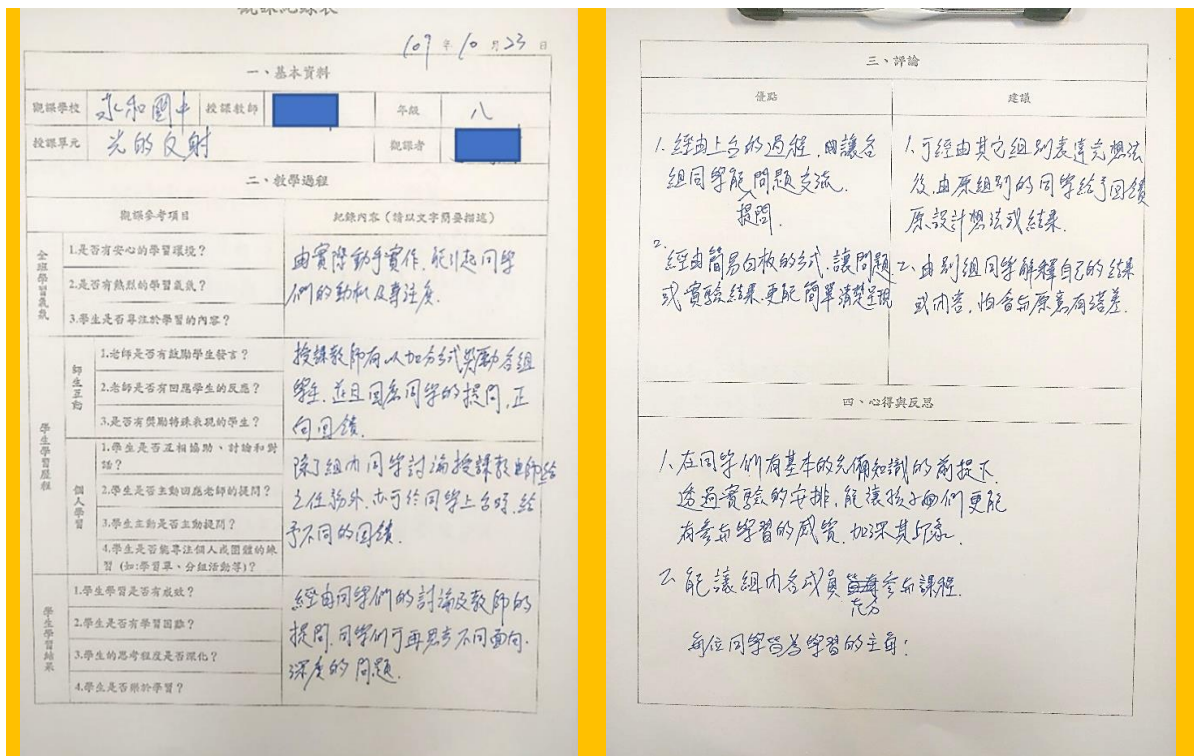 觀課紀錄表
107 年 10 月 23 日
一、基本資料
觀課學校 永和國中 授課教師 年級 八
授課單元 光的反射 觀課者
二、教學過程
觀課參考項目 紀錄內容（請以文字簡要描述）
全班學習氣氛
1.是否有安心的學習環境？
2.是否有熱烈的學習氣氛？
3.學生是否專注於學習的內容？
由實際動手實作，能引起同學
們的動機及專注度。
學生學習歷程
師生互動
1.老師是否有鼓勵學生發言？
2.老師是否有回應學生的反應？
3.是否有獎勵特殊表現的學生？
授課教師有以加分方式獎勵各組
學生，並且回應同學的提問，正
向回饋。
個人學習
1.學生是否互相協助、討論和對
話？
2.學生是否主動回應老師的提問？
3.學生主動是否主動提問？
4.學生是否能專注個人或團體的練
習（如:學習單、分組活動等）？
除了組內同學討論授課教師給
之任務外，亦可於同學上台時，給
予不同的回饋。
學生學習結果
1.學生學習是否有成效？
2.學生是否有學習困難？
3.學生的思考程度是否深化？
4.學生是否樂於學習？
經由同學們的討論及教師的
提問，同學們可再思考不同面向、
深度的問題。
三、評論
優點 建議
1. 經由上台的過程，讓各
組同學能問題交流。
提問
2.
經由簡易白板的方式，讓問題
或實驗結果更能簡單清楚呈現
1. 可經由其它組別表達完想法
後，由原組別的同學給予回饋
原設計想法或結果。
2. 由別組同學解釋自己的結果
或內容，怕會與原意有落差。
四、心得與反思
1. 在同學們有基本的先備知識的前提下
透過實驗的安排，能讓孩子們更能
有參與學習的感覺，加深其印象。
2. 能讓組內各成員參與課程。
充分
每位同學皆為學習的主角！